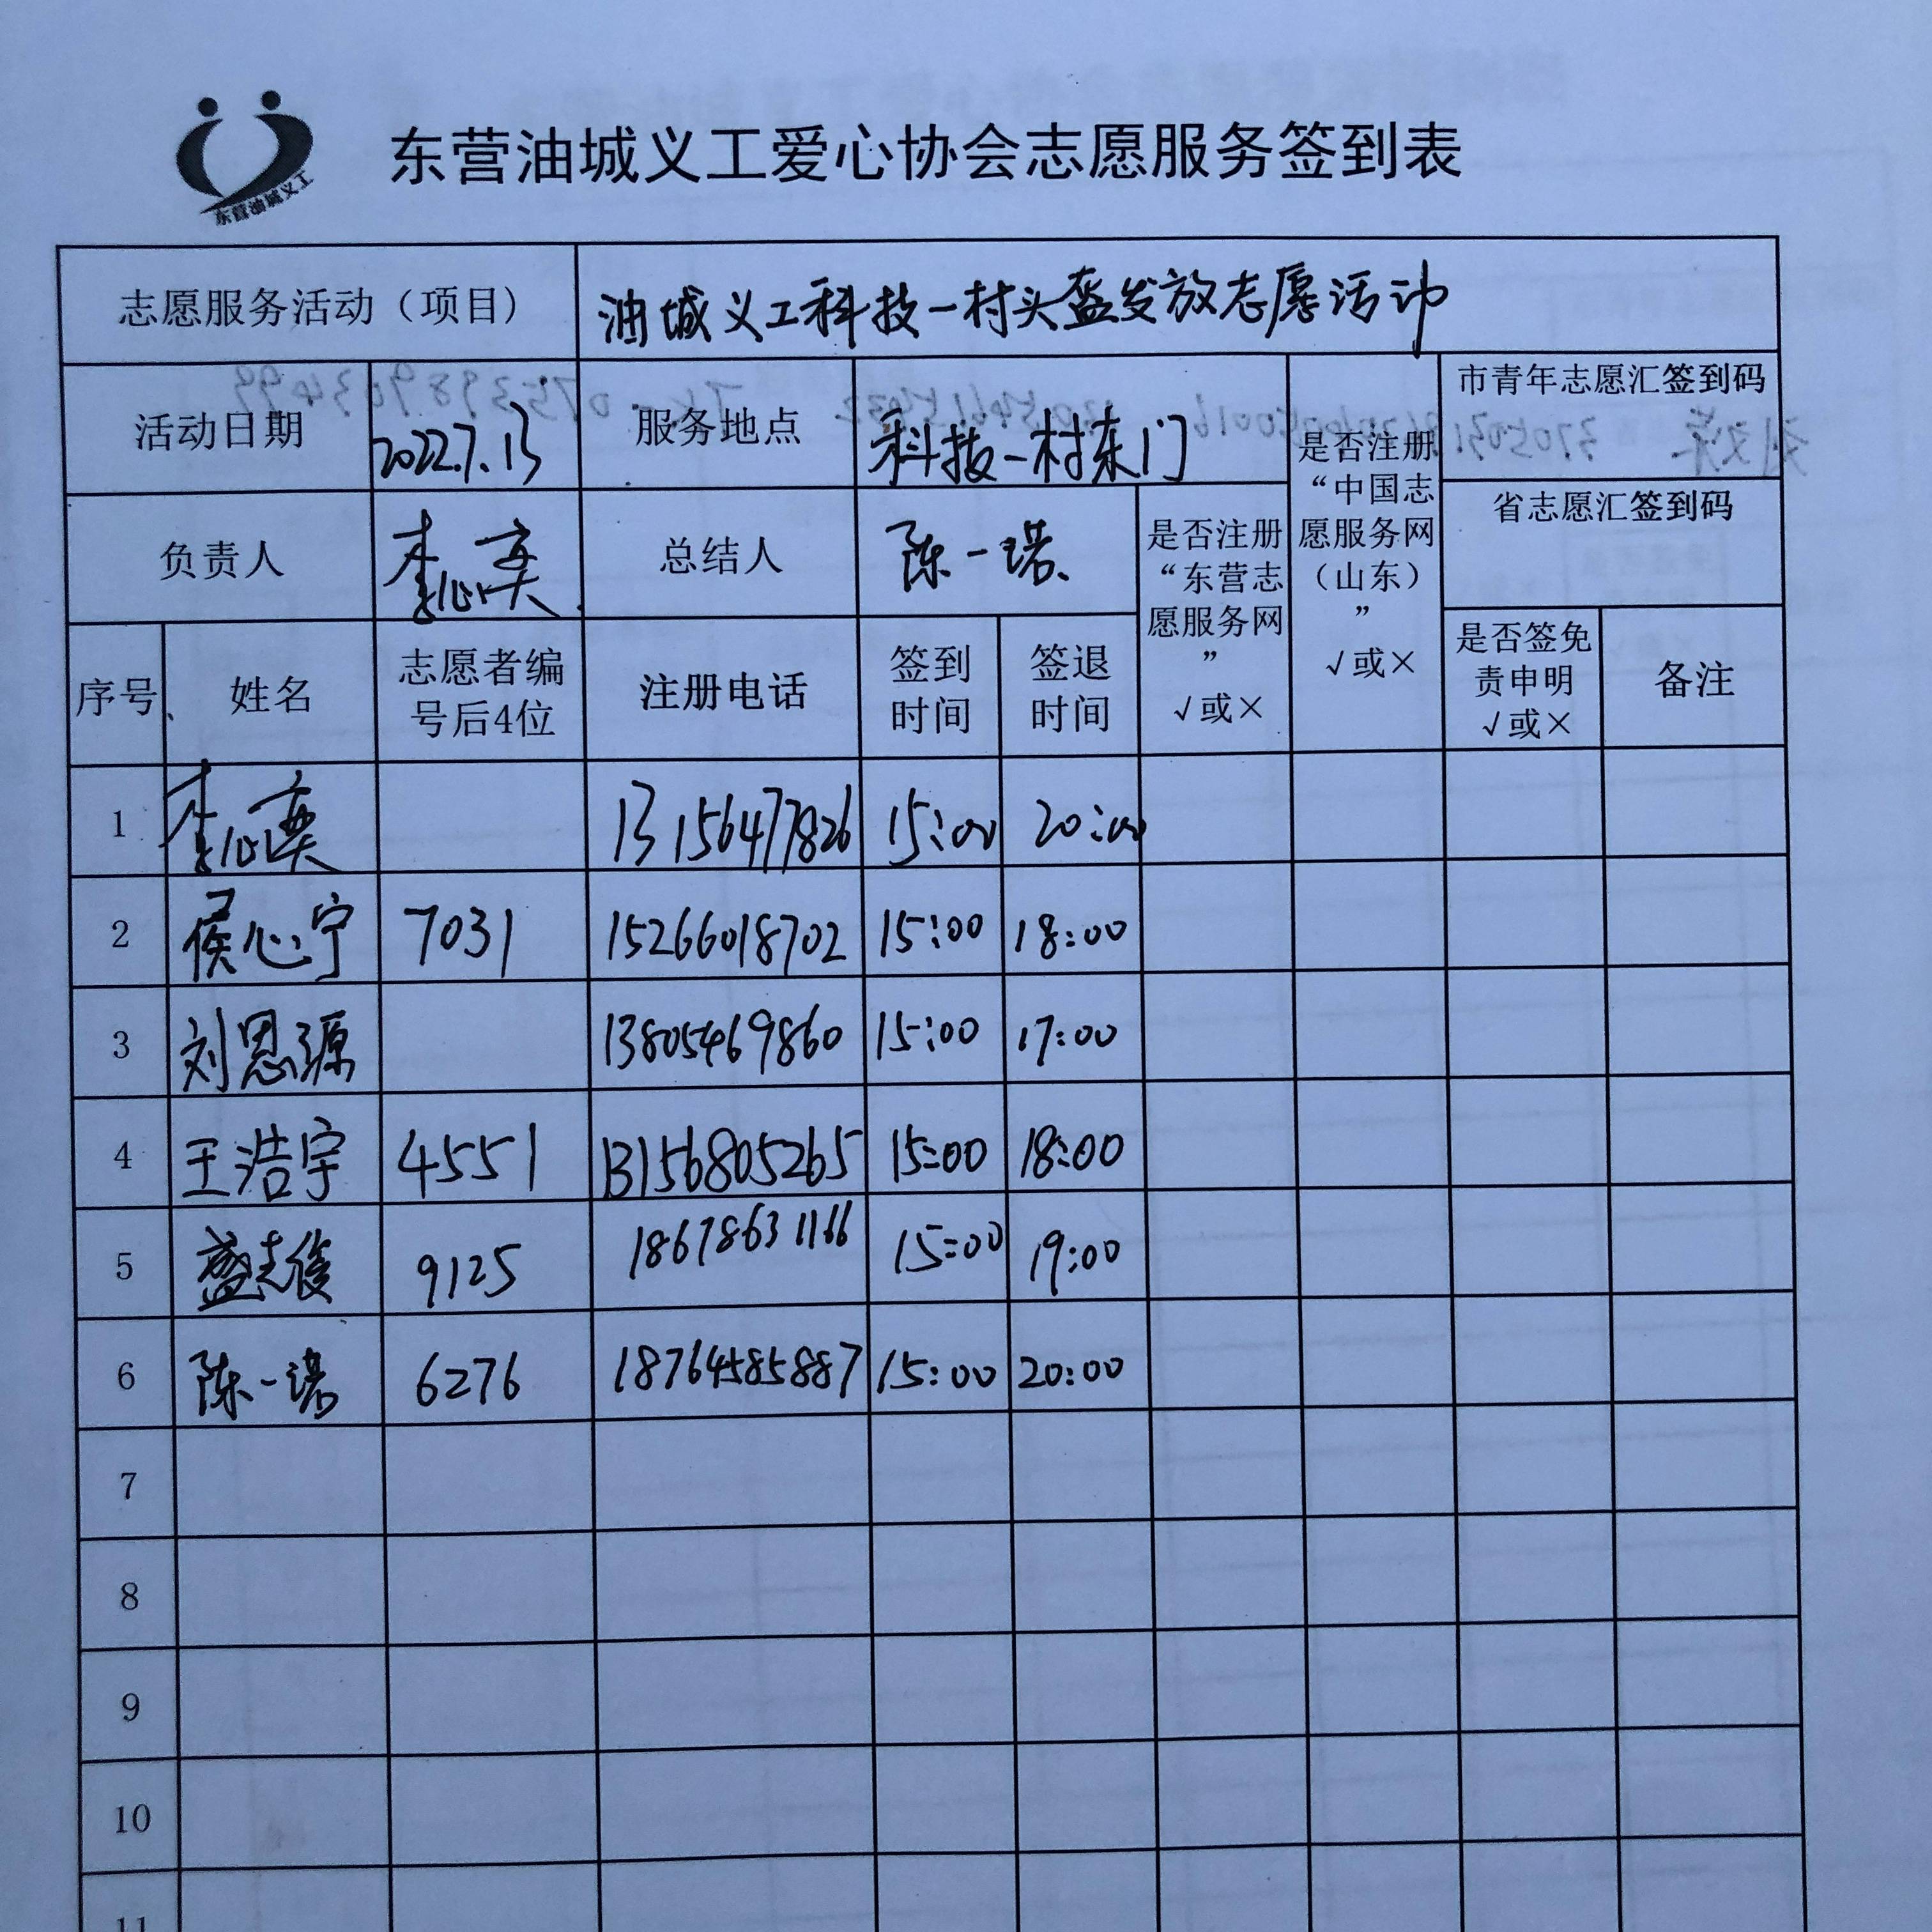 东营油城义工
东营油城义工爱心协会志愿服务签到表
志愿服务活动（项目） 油城义工科技一村头盔发放志愿活动
活动日期 2022.7.13 服务地点 科技一村东门
是否注册
“中国志
愿服务网
（山东）
”
√或×
市青年志愿汇签到码
省志愿汇签到码
负责人 李心奕 总结人 陈一诺
是否注册
“东营志
愿服务网
”
√或×
序号 姓名
志愿者编
号后4位
注册电话
签到
时间
签退
时间
是否签免
责申明
√或×
备注
1 李心奕 13156477826 15:00 20:00
2 侯心宁 7031 15266018702 15:00 18:00
3 刘恩源 13805469860 15:00 17:00
4 王浩宇 4551 13156805265 15:00 18:00
5 盛志俊 9125 18678631166 15:00 19:00
6 陈一诺 6276 18764585887 15:00 20:00
7
8
9
10
11